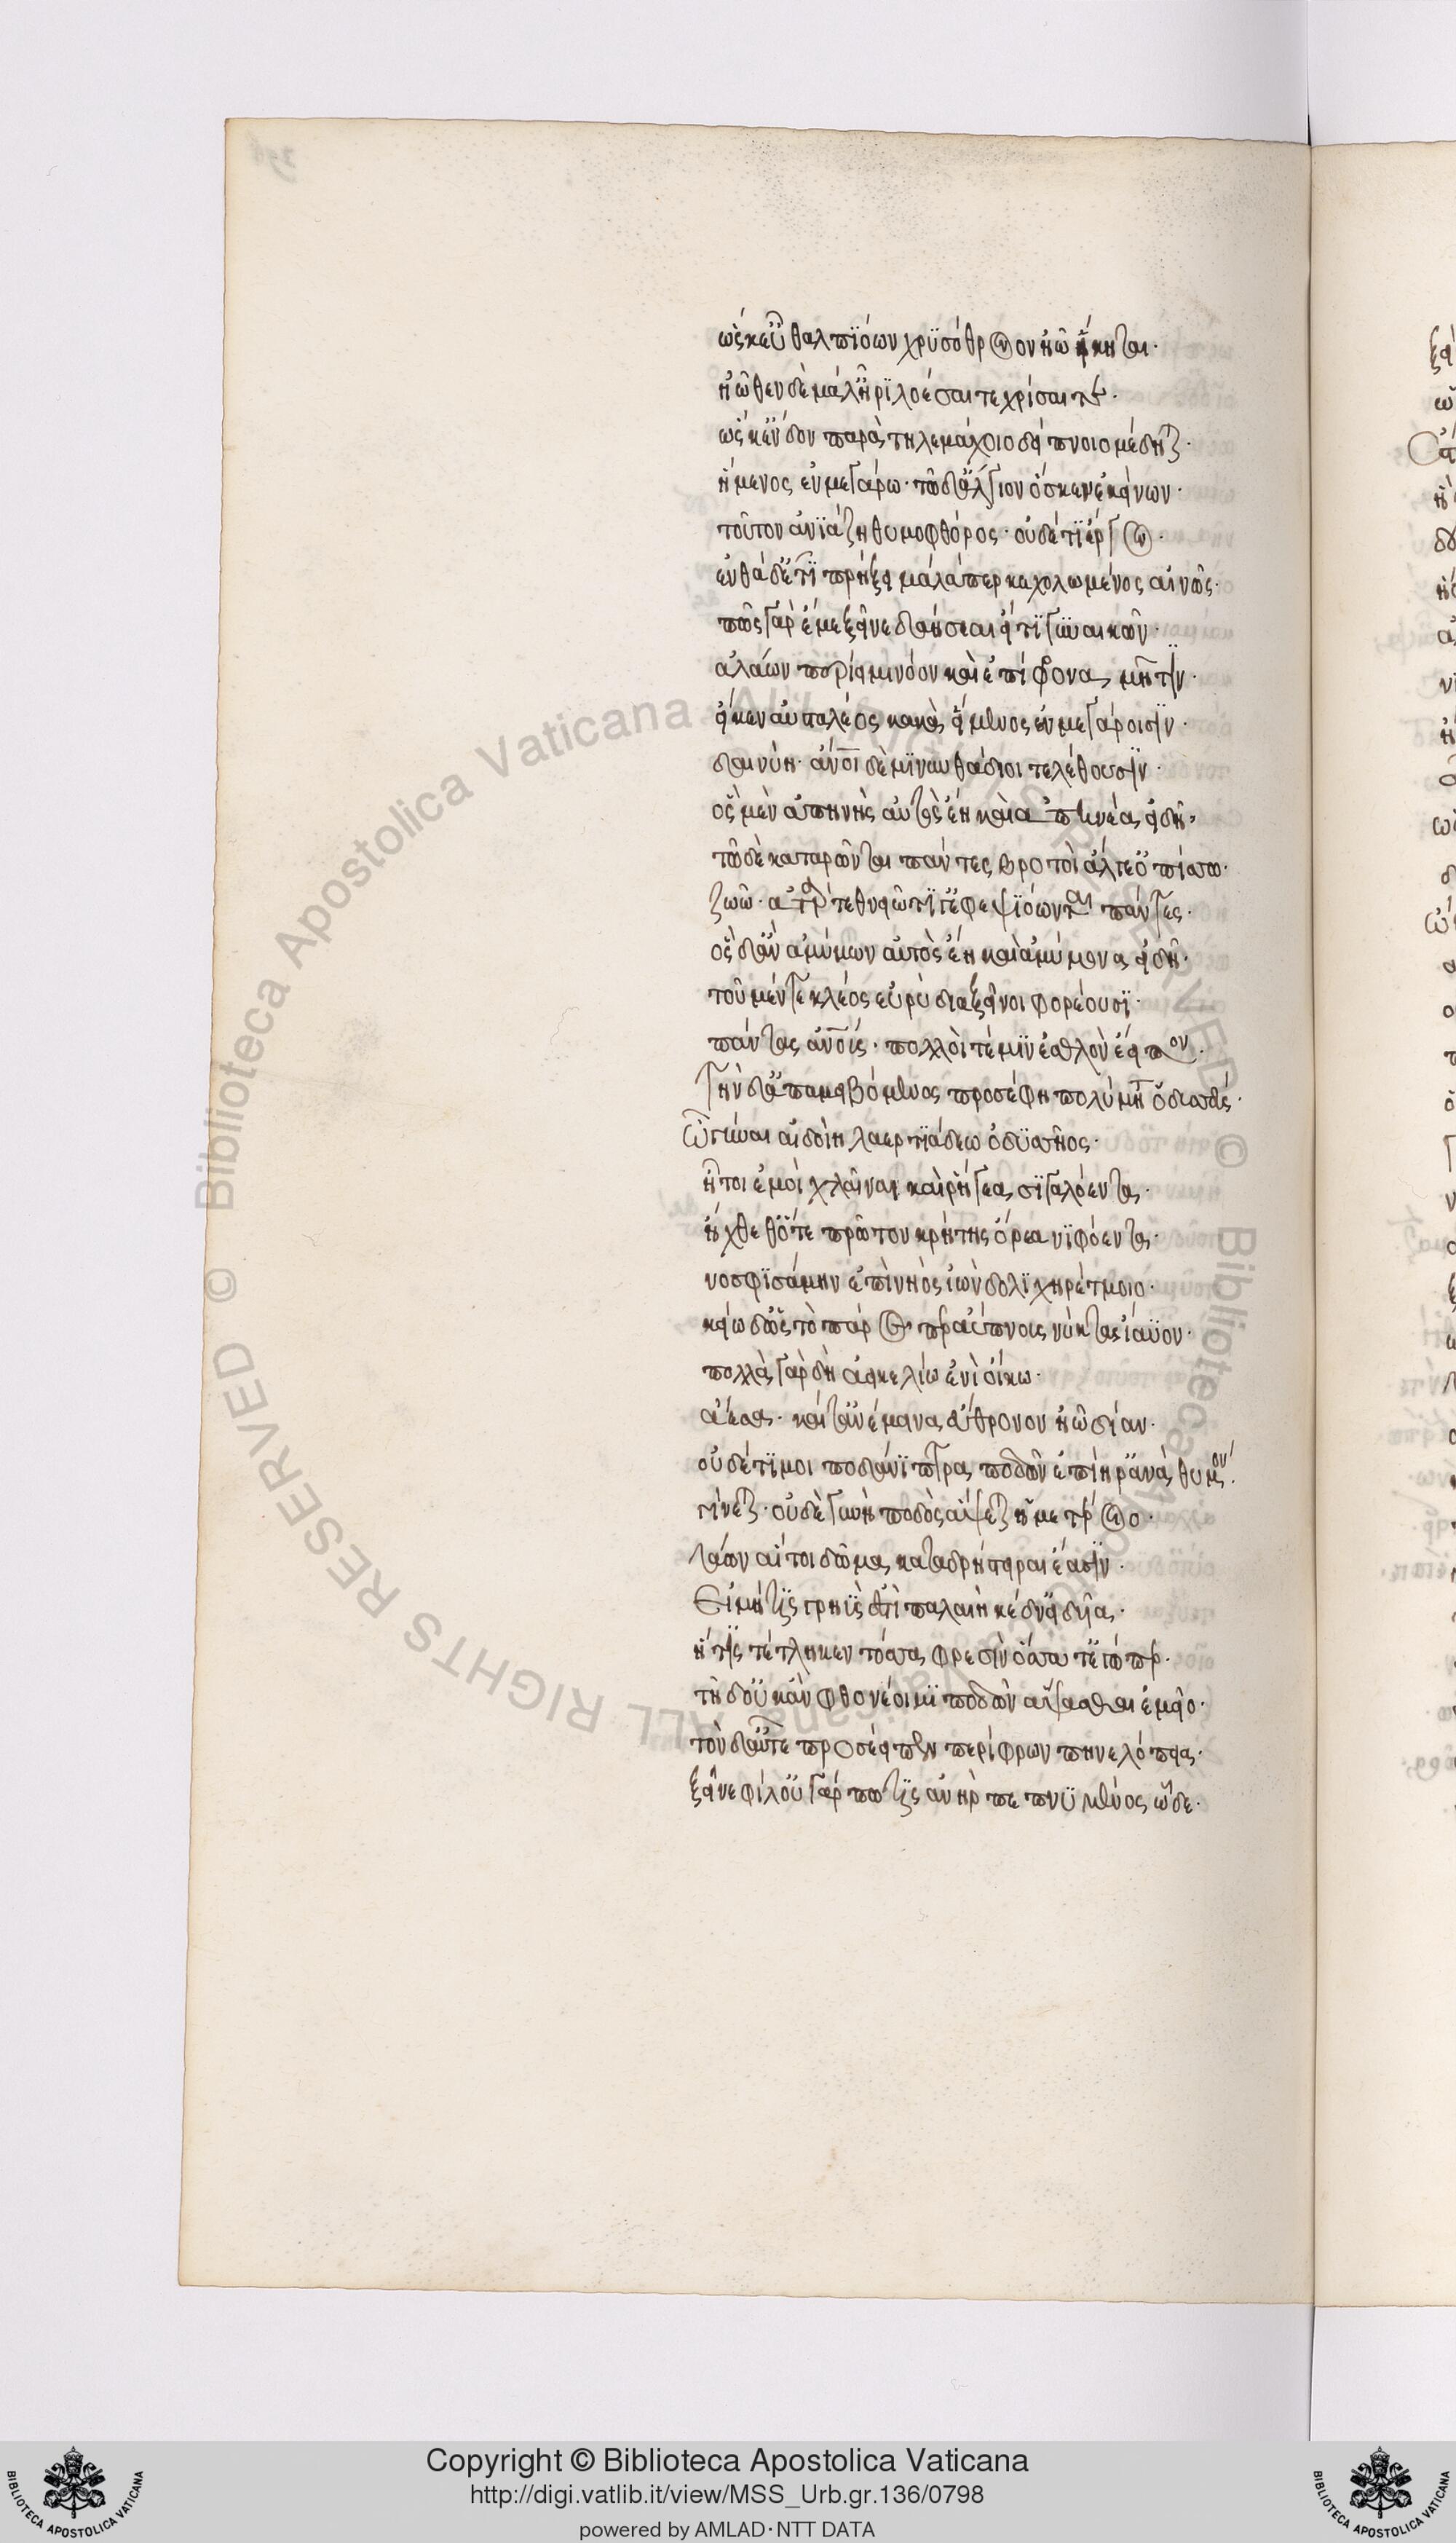 ὥς κ' εὖ θαλπιόων χρυσόθρονον ἠῶ ἵκηται·
ἠῶθεν δὲ μάλ' ἦρι λοέσσαι τε χρῖσαί τε·
ὥς κ' ἔνδον παρὰ τηλεμάχοιο δείπνοιο μέδηται·
ἥμενος ἐν μεγάρω· τῶ δ' ἄλγιον ὅς κεν ἐκείνων·
τοῦτον ἀνιάζη θυμοφθόρος· οὐδέ τι ἔργον·
ἐνθάδ' ἔτι πρήξει μάλά περ κεχολωμένος αἰνῶς·
πῶς γὰρ ἐμεῦ ξεῖνε δαήσεαι εἴ τι γυναικῶν·
ἀλλάων περίειμι νόον καὶ ἐπίφρονα μῆτιν·
εἴ κεν ἀϋσταλέος κακὰ εἱμένος ἐν μεγάροισιν·
δαινύη· ἄνοι δὲ μινυνθάδιοι τελέθουσιν·
ὃς μὲν ἀπηνὴς αὐτὸς ἔη καὶ ἀπηνέα εἰδῆ·
τῶ δὲ καταρῶνται πάντες βροτοὶ ἄλγε' ὀπίσσω·
ζωῶ· ἀτὰρ τεθνεῶτί γ' ἐφεψιόωνται πάντες·
ὃς δ' ἂν ἀμύμων αὐτὸς ἔη καὶ ἀμύμονα εἰδῆ·
τοῦ μέν τε κλέος εὐρὺ διαξεῖνοι φορέουσι·
πάντας ἀνοίς· πολλοί τέ μιν ἐσθλὸν ἔειπον·
Τὴν δ' ἀπαμειβόμενος προσέφη πολύμητις ὀδυσσεύς·
Ὦ γύναι αἰδοίη λαερτιάδεω ὀδυσῆος·
ἤτοι ἐμοὶ χλαῖναι καὶ ῥήγεα σιγαλόεντα·
ἤχθεθ' ὅτε πρῶτον κρήτης ὄρεα νιφόεντα·
νοσφισάμην ἐπὶ νηὸς ἰὼν δολιχηρέτμοιο·
κείω δ' ὡς τὸ πάρος περ ἀΰπνους νύκτας ἴαυον·
πολλὰς γὰρ δὴ ἀεικελίω ἐνὶ οἴκω·
ἄεσα· καί τ' ἀνέμεινα εὔθρονον ἠῶ δῖαν·
οὐδέ τι μοι ποδάνιπτρα ποδῶν ἐπίηρα ἀνὰ θυμόν·
γίνεται· οὐδὲ γυνὴ ποδὸς ἅψεται ἡμετέροιο·
τάων αἵ τοι δῶμα κατα δρήστειραι ἔασιν·
Εἰ μή τις γρηῢς ἐστὶ παλαιὴ κέδν' εἰδυῖα·
ἥ τις τέτληκεν τόσα φρεσὶν ὅσσα τ' ἐγώ περ·
τῆ δ' οὐκ ἂν φθονέοιμι ποδῶν ἅψασθαι ἐμεῖο·
τὸν δ' αὖτε προσέειπεν περίφρων πηνελόπεια·
ξεῖνε φίλ' οὐ γάρ πώ τις ἀνὴρ πεπνυμένος ὧδε·
Copyright © Biblioteca Apostolica Vaticana
http://digi.vatlib.it/view/MSS_Urb.gr.136/0798
powered by AMLAD·NTT DATA